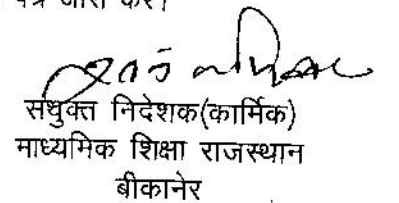 पत्र जारी करें।
संयुक्त निदेशक(कार्मिक)
माध्यमिक शिक्षा राजस्थान
बीकानेर